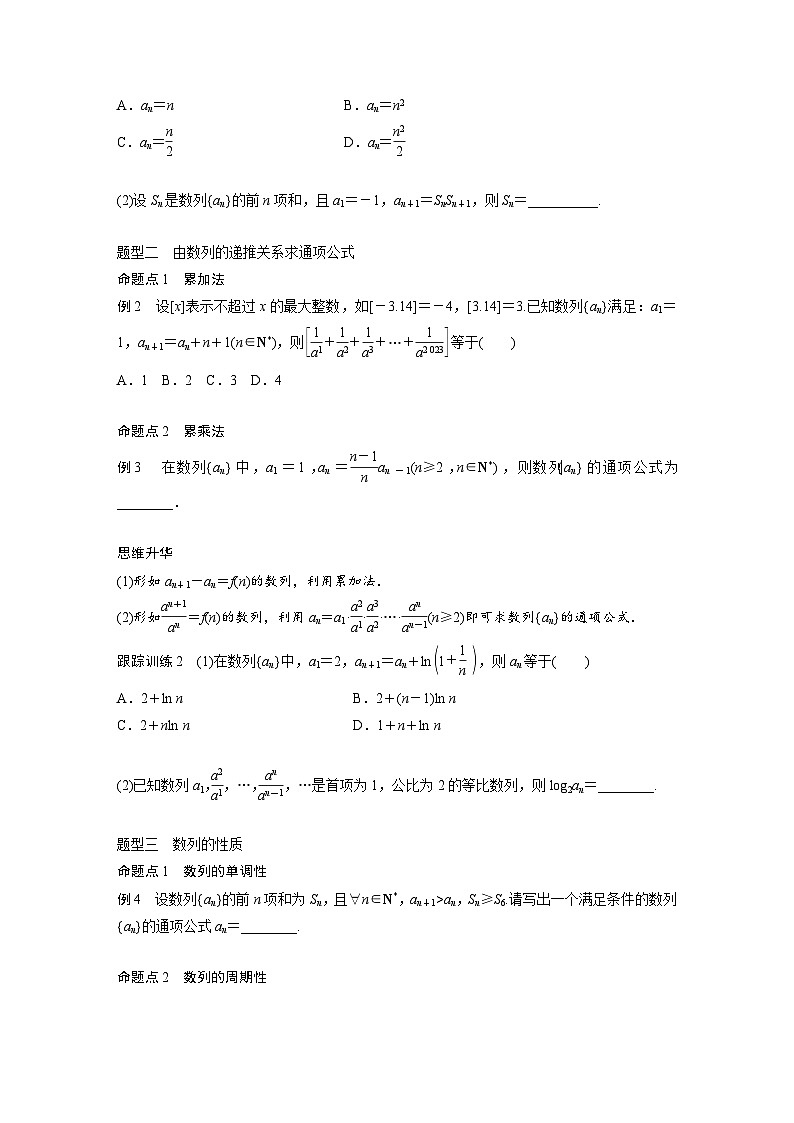 A．aₙ＝n　B．aₙ＝n²
C．aₙ＝n/2　D．aₙ＝n²/2
(2)设 Sₙ是数列{aₙ}的前 n 项和，且 a₁＝－1，aₙ₊₁＝SₙSₙ₊₁，则 Sₙ＝__________.
题型二　由数列的递推关系求通项公式
命题点 1　累加法
例 2　设[x]表示不超过 x 的最大整数，如[－3.14]＝－4，[3.14]＝3.已知数列{aₙ}满足：a₁＝
1，aₙ₊₁＝aₙ＋n＋1(n∈N*)，则[1/a₁＋1/a₂＋1/a₃＋…＋1/a₂ ₀₂₃]等于(　　)
A．1　B．2　C．3　D．4
命题点 2　累乘法
例 3　在数列{aₙ}中，a₁＝1，aₙ＝(n－1)/n aₙ₋₁(n≥2，n∈N*)，则数列{aₙ}的通项公式为
________．
思维升华
(1)形如 aₙ₊₁－aₙ＝f(n)的数列，利用累加法．
(2)形如aₙ₊₁/aₙ＝f(n)的数列，利用 aₙ＝a₁·a₂/a₁·a₃/a₂·…·aₙ/aₙ₋₁(n≥2)即可求数列{aₙ}的通项公式．
跟踪训练 2　(1)在数列{aₙ}中，a₁＝2，aₙ₊₁＝aₙ＋ln(1＋1/n)，则 aₙ等于(　　)
A．2＋ln n　B．2＋(n－1)ln n
C．2＋nln n　D．1＋n＋ln n
(2)已知数列 a₁，a₂/a₁，…，aₙ/aₙ₋₁，…是首项为 1，公比为 2 的等比数列，则 log₂aₙ＝________.
题型三　数列的性质
命题点 1　数列的单调性
例 4　设数列{aₙ}的前 n 项和为 Sₙ，且∀n∈N*，aₙ₊₁>aₙ，Sₙ≥S₆.请写出一个满足条件的数列
{aₙ}的通项公式 aₙ＝________.
命题点 2　数列的周期性